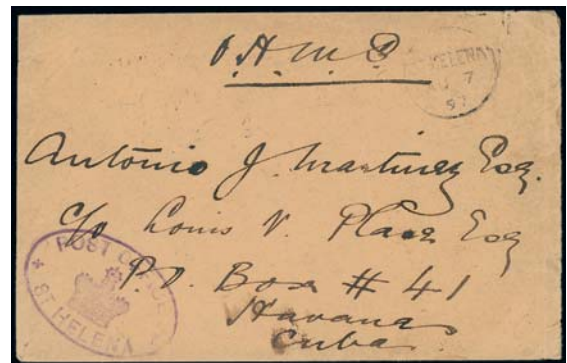 O.H.M.S
HELENA
7
97
Antonio J. Martinez Esq.
c/o Louis V. Placé Esq
P.O. Box # 41
Havana
Cuba
POST OFFICE
* ST HELENA *